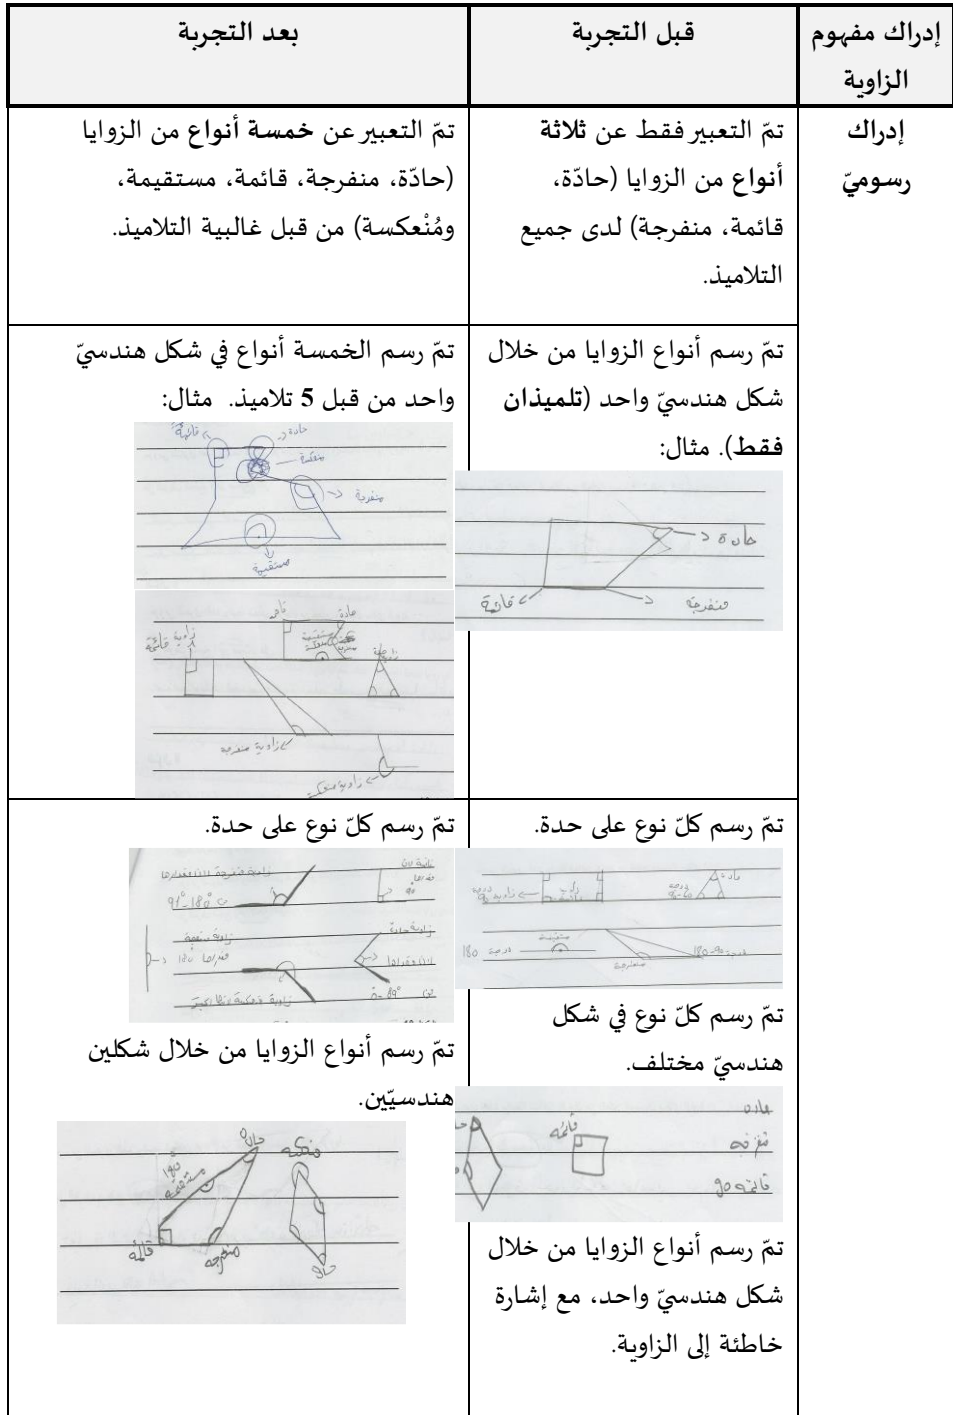 إدراك مفهوم
الزاوية
قبل التجربة
بعد التجربة
إدراك
رسوميّ
تمّ التعبير فقط عن ثلاثة
أنواع من الزوايا (حادّة،
قائمة، منفرجة) لدى جميع
التلاميذ.
تمّ التعبير عن خمسة أنواع من الزوايا
(حادّة، منفرجة، قائمة، مستقيمة،
ومُنْعكسة) من قبل غالبية التلاميذ.
تمّ رسم أنواع الزوايا من خلال
شكل هندسيّ واحد (تلميذان
فقط). مثال:
حادة
منفرجة
قائمة
تمّ رسم الخمسة أنواع في شكل هندسيّ
واحد من قبل 5 تلاميذ. مثال:
قائمة
حادة
منعكسة
منفرجة
مستقيمة
حادة
زاوية قائمة
زاوية منفرجة
زاوية منعكسة
تمّ رسم كلّ نوع على حدة.
حادة
مستقيمة
180 درجة
منفرجة
تمّ رسم كلّ نوع في شكل
هندسيّ مختلف.
حاده
قائمه
قائمه 90
تمّ رسم أنواع الزوايا من خلال
شكل هندسيّ واحد، مع إشارة
خاطئة إلى الزاوية.
تمّ رسم كلّ نوع على حدة.
زاوية منفرجة
91°-180°
90°
زاوية حادة
180
0-89°
تمّ رسم أنواع الزوايا من خلال شكلين
هندسيّين.
حادة
منعكسه
180
مستقيمه
قائمه
منفرجه